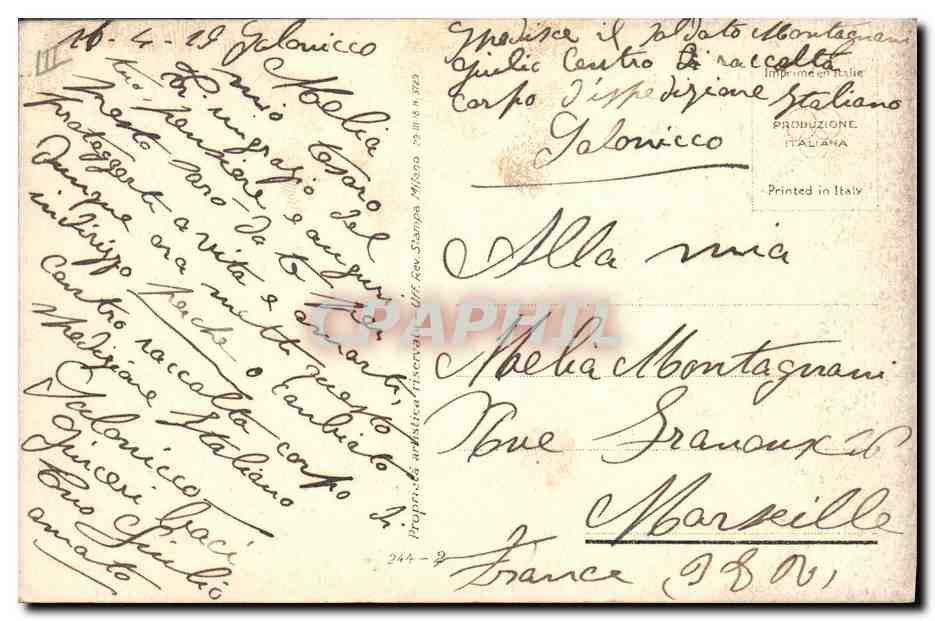 16-4-19 Salonicco
III
Melia
mio tesoro
Ti ringrazio del
tuo pensiero e auguri
presto sarò da te per
proteggerti a vita e amarti,
Dunque ora metti questo
indirizzo perche o cambiato
Centro raccolta corpo di
spedizione Italiano
Salonicco
Sinceri baci
tuo Giulio
amato
Proprietà artistica riservata - Uff. Rev. Stampa, Milano 29-III-18 N. 3725
244-2
Spedisce il soldato Montagnani
Giulio Centro di raccolta
corpo d'ispedizione Italiano
Salonicco
Imprimé en Italie
PRODUZIONE
ITALIANA
Printed in Italy
Alla mia
Melia Montagnani
Rue Granoux 26
Marseille
France
CPAPHIL